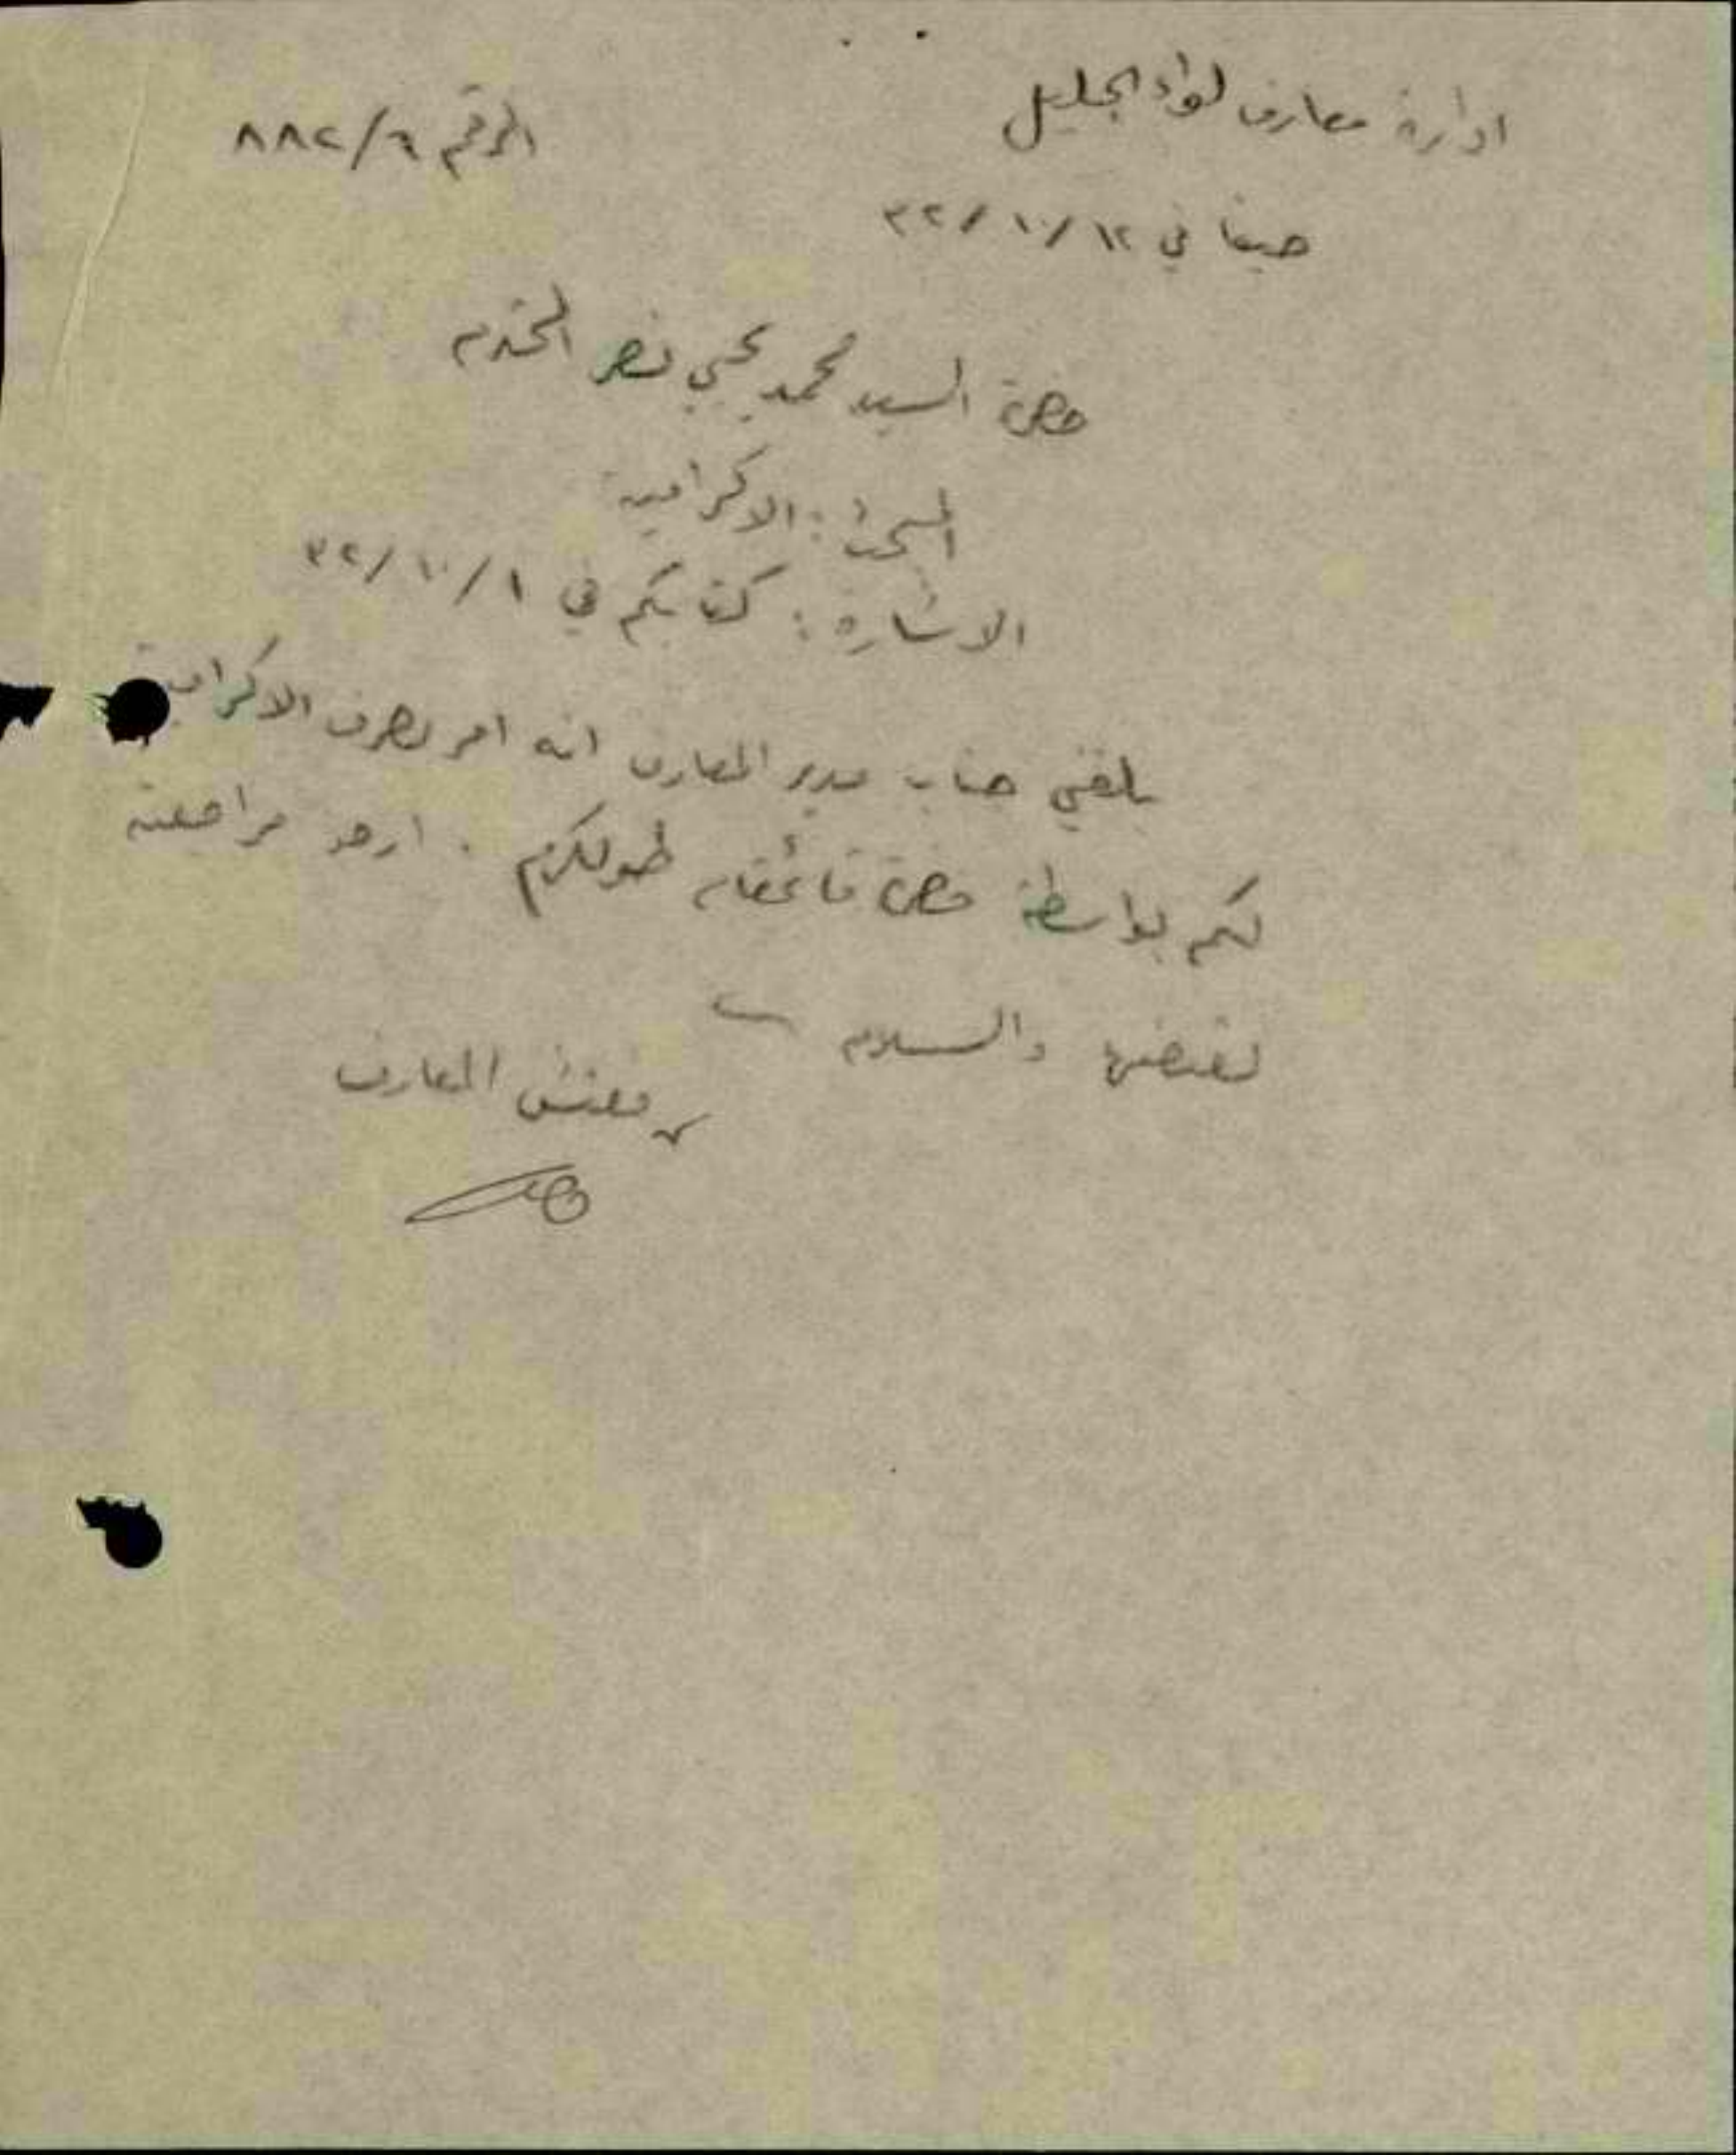 ادارة معارف لواء الجليل
الرقم ٦/٨٨٢
حيفا في ١٢/١٠/٣٢
حضرة السيد محمد يحيي نصر المحترم
المبحث: الاكرامية
الاشارة: كتابكم في ١/١٠/٣٢
بلغني جناب مدير المعارف انه امر بصرف الاكرامية
لكم بواسطة حضرة قائمقام طولكرم . ارجو مراجعته
لقبضها والسلام
مفتش المعارف